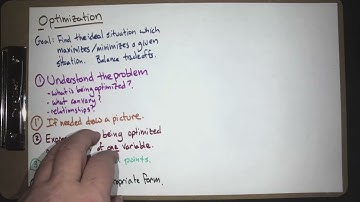 Optimization
Goal: Find the ideal situation which
maximizes/minimizes a given
situation. Balance tradeoffs.
① Understand the problem
- What is being optimized?
- What can vary?
- relationships?
①' If needed draw a picture.
② being optimized
of one variable.
points.
form.